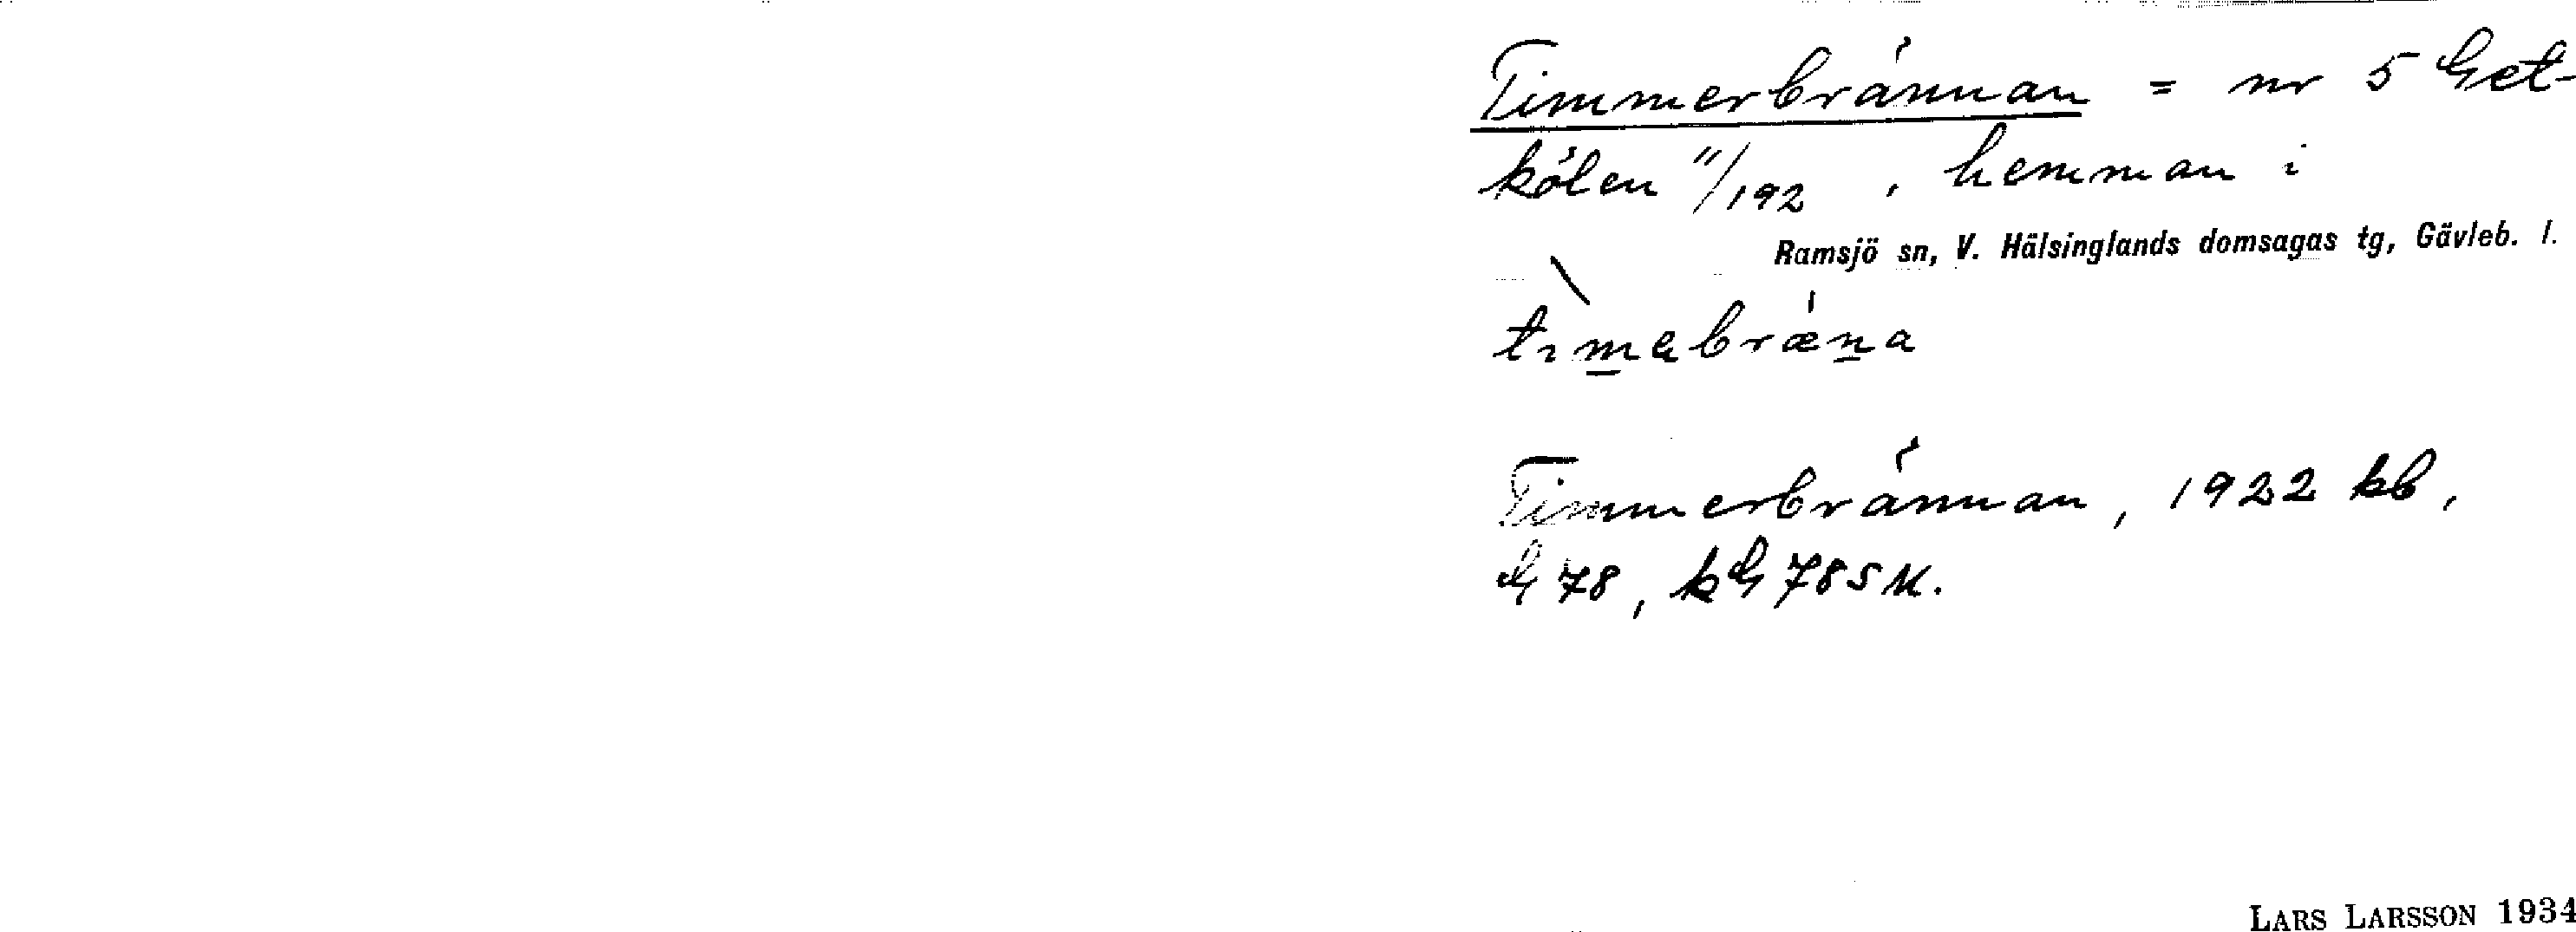 Timmerbrännan = nr 5 Get-
kölen 11/192, hemman i
Ramsjö sn, V. Hälsinglands domsagas tg, Gävleb. l.
Timmerbrännan, 1922 kb,
G 78, kG 78 SM.
LARS LARSSON 1934